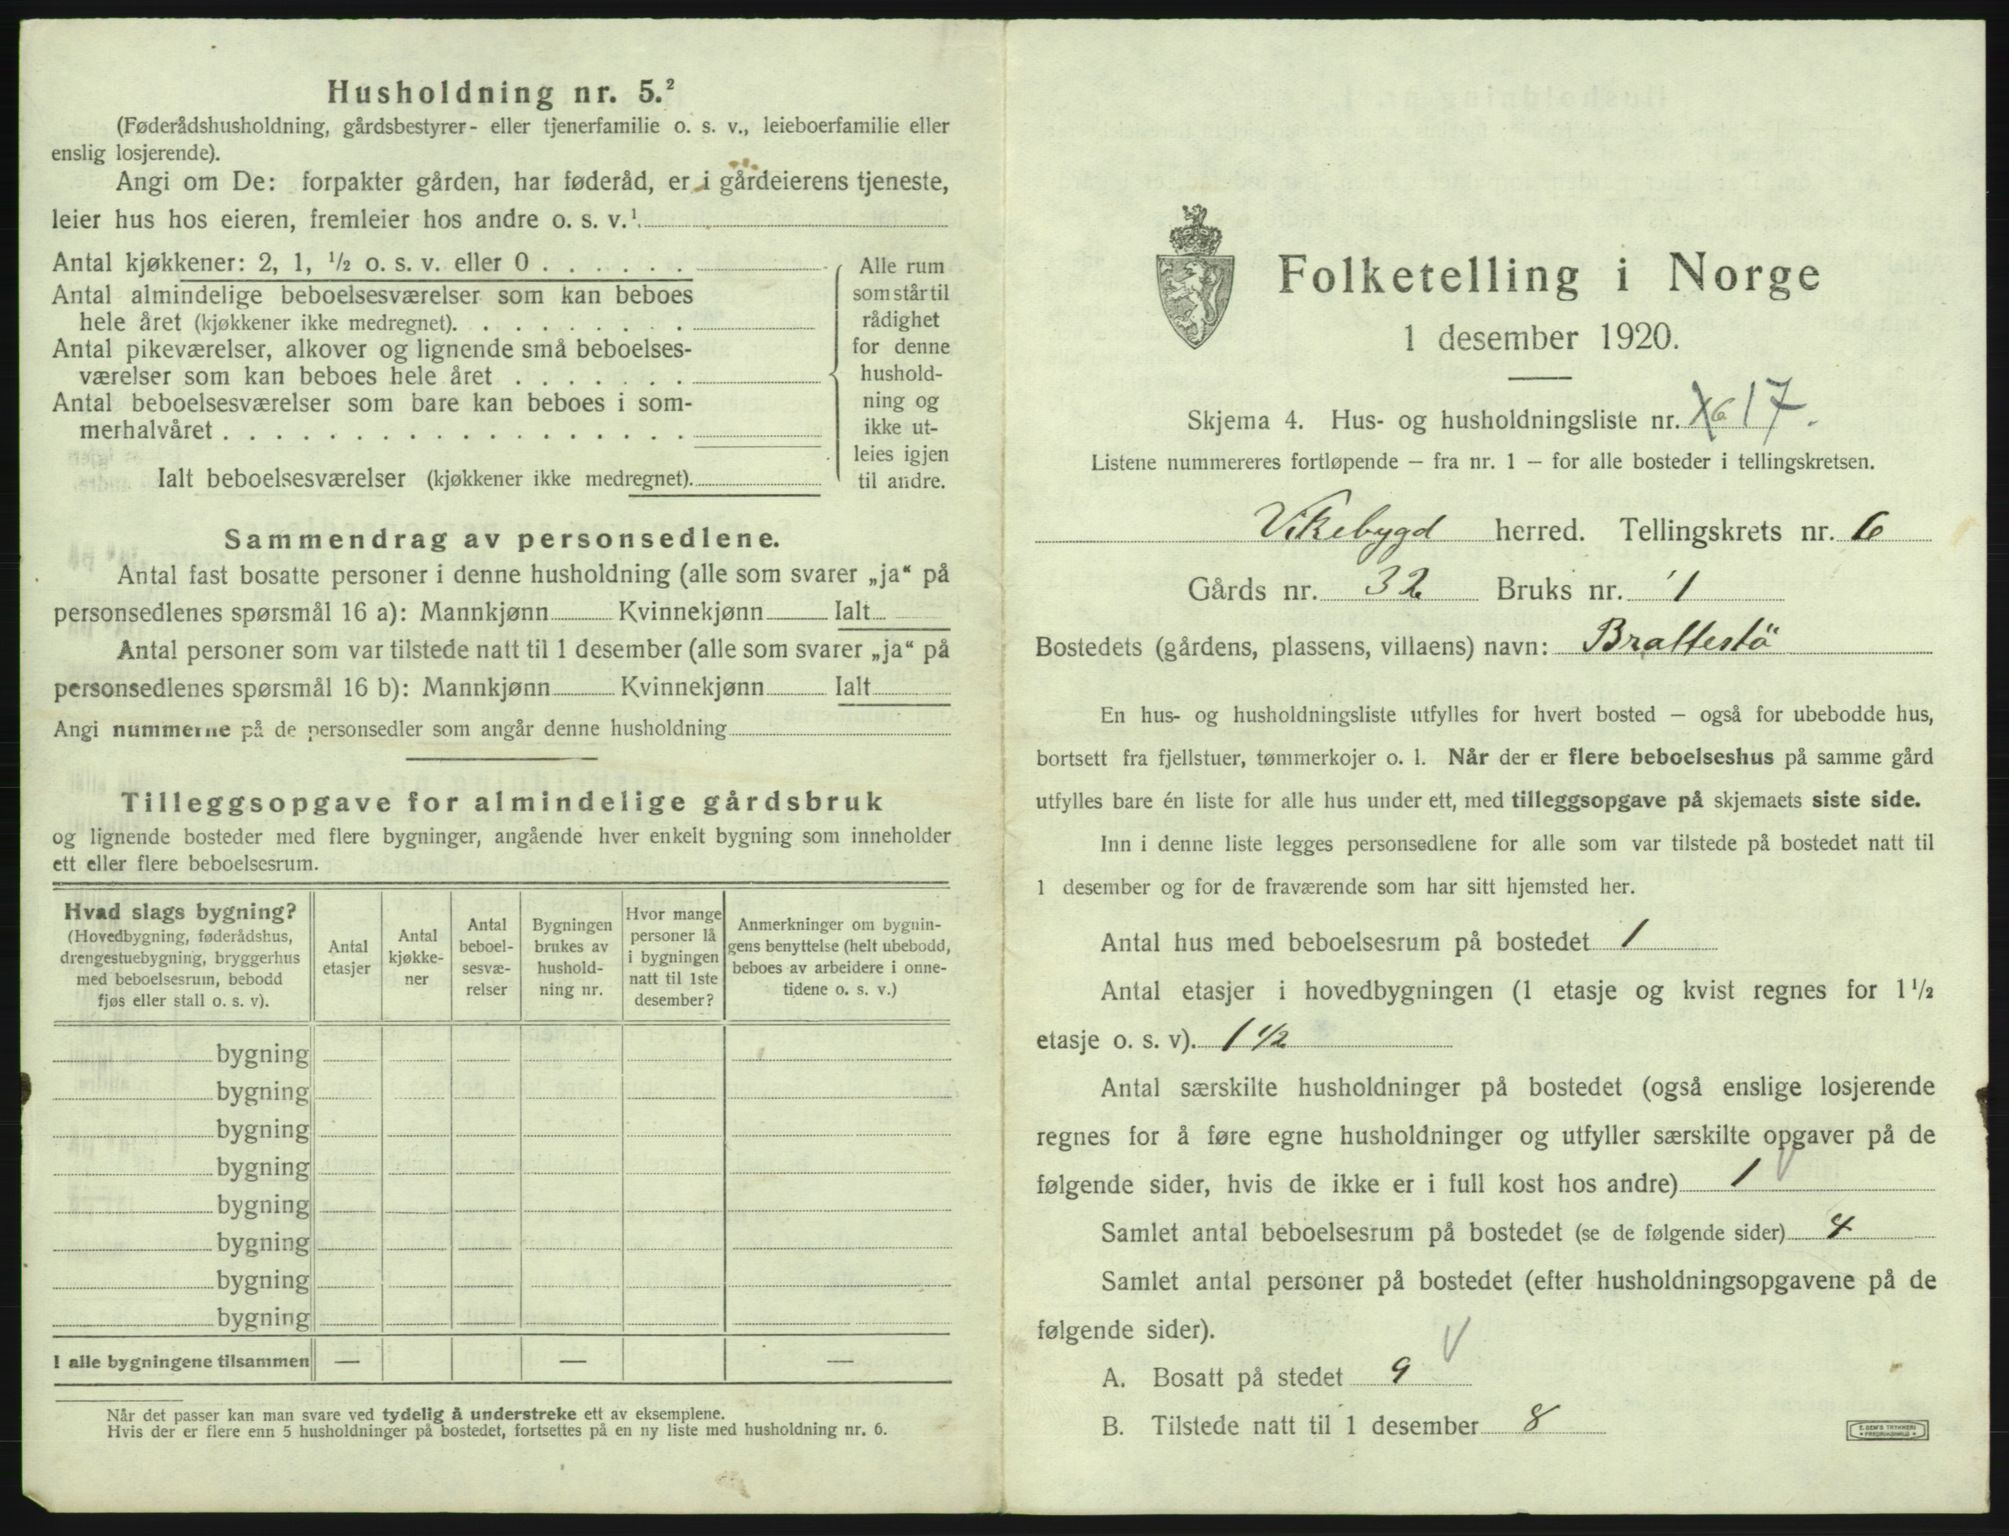 Husholdning nr. 5.²
(Føderådshusholdning, gårdsbestyrer- eller tjenerfamilie o. s. v., leieboerfamilie eller
enslig losjerende).
Angi om De: forpakter gården, har føderåd, er i gårdeierens tjeneste,
leier hus hos eieren, fremleier hos andre o. s. v.¹
Antal kjøkkener: 2, 1, ½ o. s. v. eller 0 . . . . . .
Antal almindelige beboelsesværelser som kan beboes
hele året (kjøkkener ikke medregnet). . . . . . . . .
Antal pikeværelser, alkover og lignende små beboelses-
værelser som kan beboes hele året . . . . . . .
Antal beboelsesværelser som bare kan beboes i som-
merhalvåret . . . . . . . . . . . . . . . . . .
Ialt beboelsesværelser (kjøkkener ikke medregnet).
Alle rum
som står til
rådighet
for denne
hushold-
ning og
ikke ut-
leies igjen
til andre.
Sammendrag av personsedlene.
Antal fast bosatte personer i denne husholdning (alle som svarer „ja“ på
personsedlenes spørsmål 16 a): Mannkjønn Kvinnekjønn Ialt
Antal personer som var tilstede natt til 1 desember (alle som svarer „ja“ på
personsedlenes spørsmål 16 b): Mannkjønn Kvinnekjønn Ialt
Angi nummerne på de personsedler som angår denne husholdning
Tilleggsopgave for almindelige gårdsbruk
og lignende bosteder med flere bygninger, angående hver enkelt bygning som inneholder
ett eller flere beboelsesrum.
Hvad slags bygning?
(Hovedbygning, føderådshus,
drengestuebygning, bryggerhus
med beboelsesrum, bebodd
fjøs eller stall o. s. v).
Antal
etasjer
Antal
kjøkke-
ner
Antal
beboel-
sesvæ-
relser
Bygningen
brukes av
hushold-
ning nr.
Hvor mange
personer lå
i bygningen
natt til 1ste
desember?
Anmerkninger om bygnin-
gens benyttelse (helt ubebodd,
beboes av arbeidere i onne-
tidene o. s. v.)
bygning
bygning
bygning
bygning
bygning
bygning
bygning
bygning
I alle bygningene tilsammen — — —
Når det passer kan man svare ved tydelig å understreke ett av eksemplene.
Hvis der er flere enn 5 husholdninger på bostedet, fortsettes på en ny liste med husholdning nr. 6.
Folketelling i Norge
1 desember 1920.
Skjema 4. Hus- og husholdningsliste nr. 17.
Listene nummereres fortløpende — fra nr. 1 — for alle bosteder i tellingskretsen.
Vikebygd herred. Tellingskrets nr. 6
Gårds nr. 32 Bruks nr. 1
Bostedets (gårdens, plassens, villaens) navn: Brattestö
En hus- og husholdningsliste utfylles for hvert bosted — også for ubebodde hus,
bortsett fra fjellstuer, tømmerkojer o. l. Når der er flere beboelseshus på samme gård
utfylles bare én liste for alle hus under ett, med tilleggsopgave på skjemaets siste side.
Inn i denne liste legges personsedlene for alle som var tilstede på bostedet natt til
1 desember og for de fraværende som har sitt hjemsted her.
Antal hus med beboelsesrum på bostedet 1
Antal etasjer i hovedbygningen (1 etasje og kvist regnes for 1½
etasje o. s. v). 1½
Antal særskilte husholdninger på bostedet (også enslige losjerende
regnes for å føre egne husholdninger og utfyller særskilte opgaver på de
følgende sider, hvis de ikke er i full kost hos andre) 1
Samlet antal beboelsesrum på bostedet (se de følgende sider) 4
Samlet antal personer på bostedet (efter husholdningsopgavene på de
følgende sider).
A. Bosatt på stedet 9
B. Tilstede natt til 1 desember 8